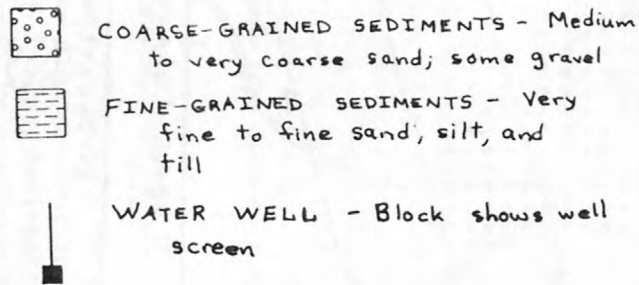 COARSE-GRAINED SEDIMENTS - Medium
to very coarse sand; some gravel
FINE-GRAINED SEDIMENTS - Very
fine to fine sand, silt, and
till
WATER WELL - Block shows well
screen